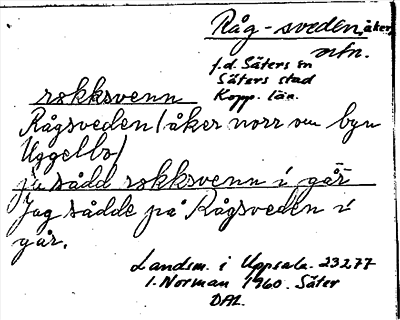 Råg-sveden, åker
ntn.
f.d. Säters sn
Säters stad
Kopp. län.
rokksvenn
Rågsveden (åker norr om byn
Uggelbo)
ja sådd rokksvenn i går
Jag sådde på Rågsveden i
går.
Landsm. i Uppsala. 23277
I. Norman 1960. Säter
DAL.